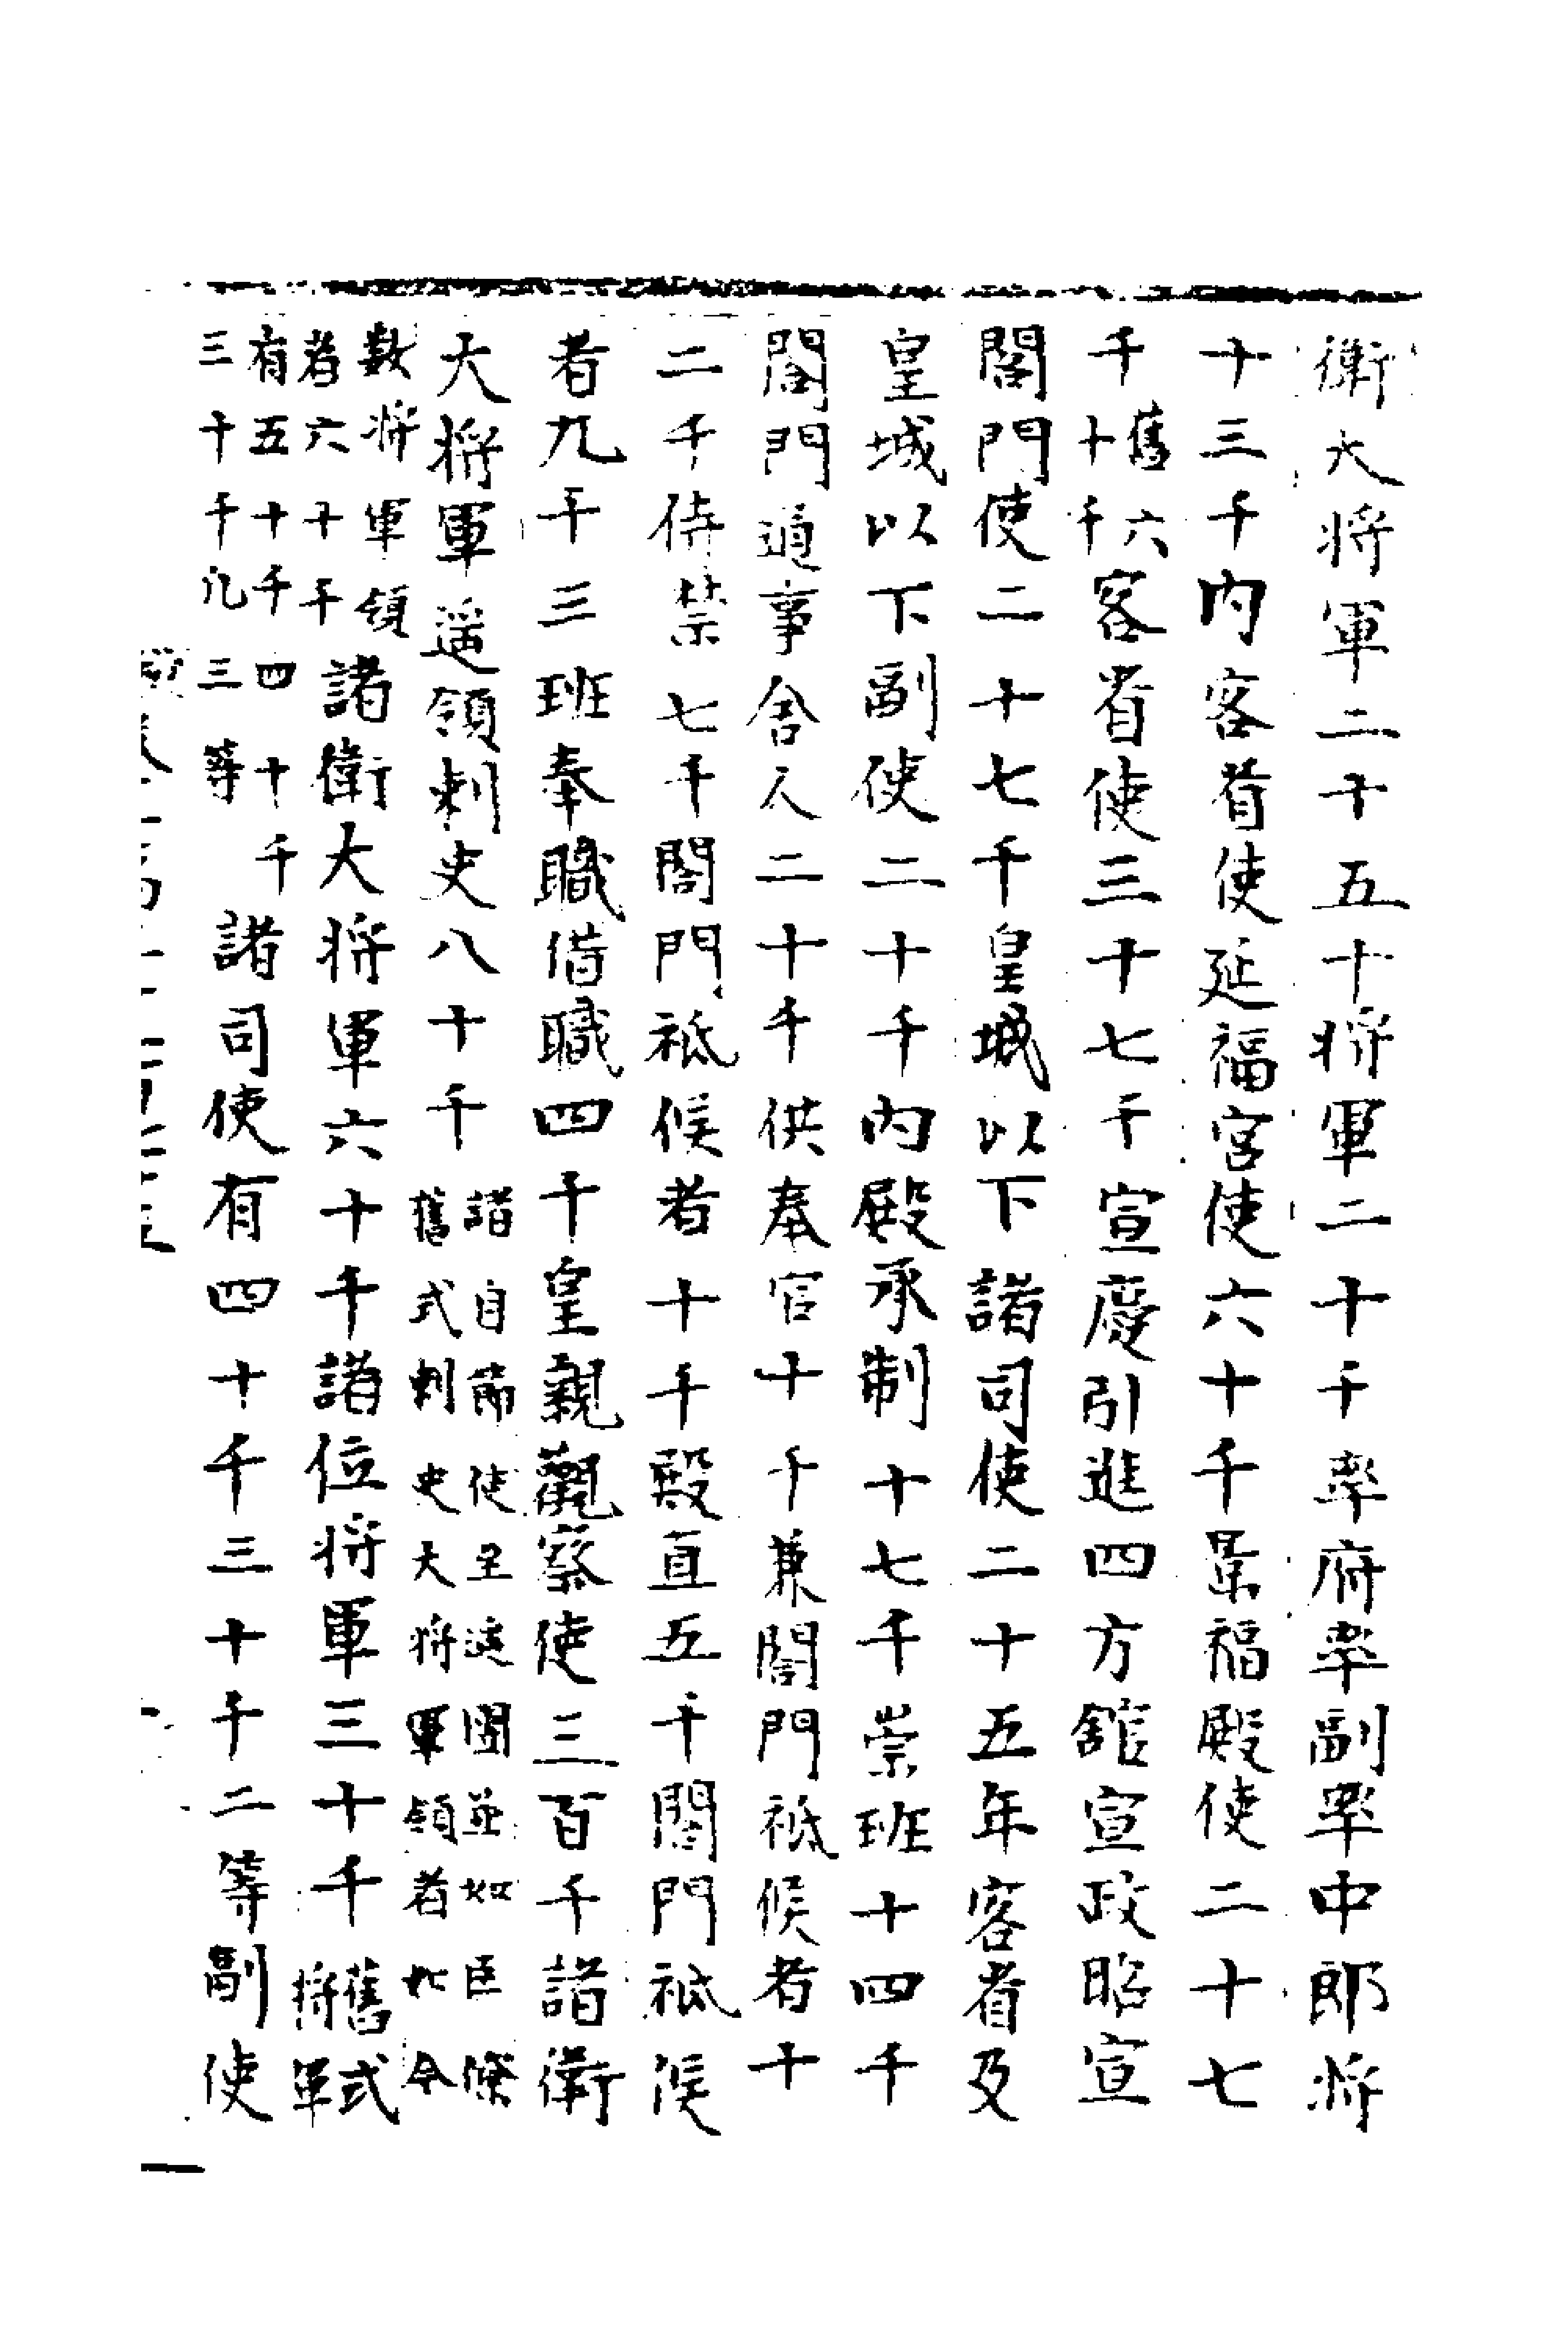 衛大將軍二十五十將軍二十千率府率副率中郎將
十三千內客省使延福宮使六十千景福殿使二十七
千舊六十千客省使三十七千宣慶引進四方館宣政昭宣
閤門使二十七千皇城以下諸司使二十五年客省及
皇城以下副使二十千內殿承制十七千崇班十四千
閤門通事舍人二十千供奉官十千兼閤門祗候者十
二千侍禁七千閤門祗候者十千殿直五千閤門祗候
者九千三班奉職借職四千皇親觀察使三百千諸衛
大將軍遥領刺史八十千諸自節使至遠團並如臣僚舊式刺史大將軍領者如令
諸衛大將軍六十千諸位將軍三十千舊式將軍
數將軍領者六十千有五十千四十千三十千凡三等
諸司使有四十千三十千二等副使